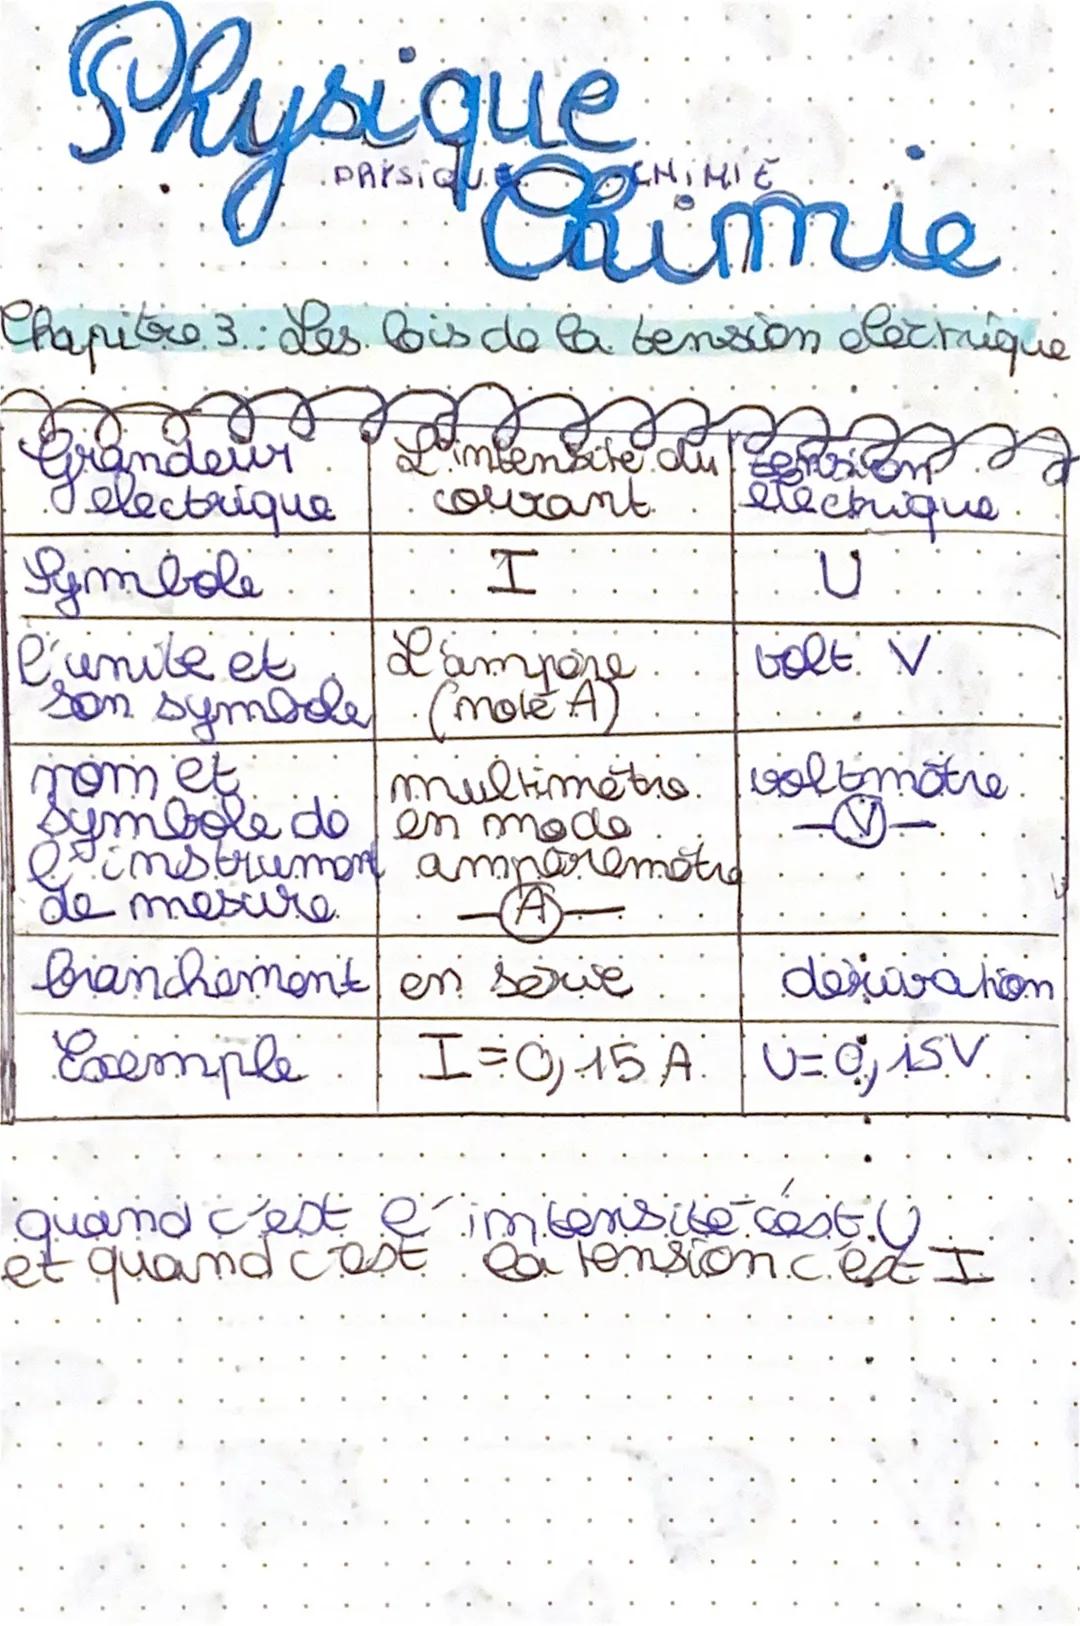 Physique
PHYSIQUE CHIMIE
Chimie
Chapitre 3 : Les lois de la tension électrique
Grandeur électrique L'intensité du courant tension électrique
Symbole I U
l'unité et son symbole L'ampère (noté A) volt V
nom et symbole de l'instrument de mesure multimètre en mode ampèremètre A voltmètre V
branchement en série dérivation
Exemple I = 0,15 A U = 0,15V
quand c'est l'intensité c'est U
et quand c'est la tension c'est I